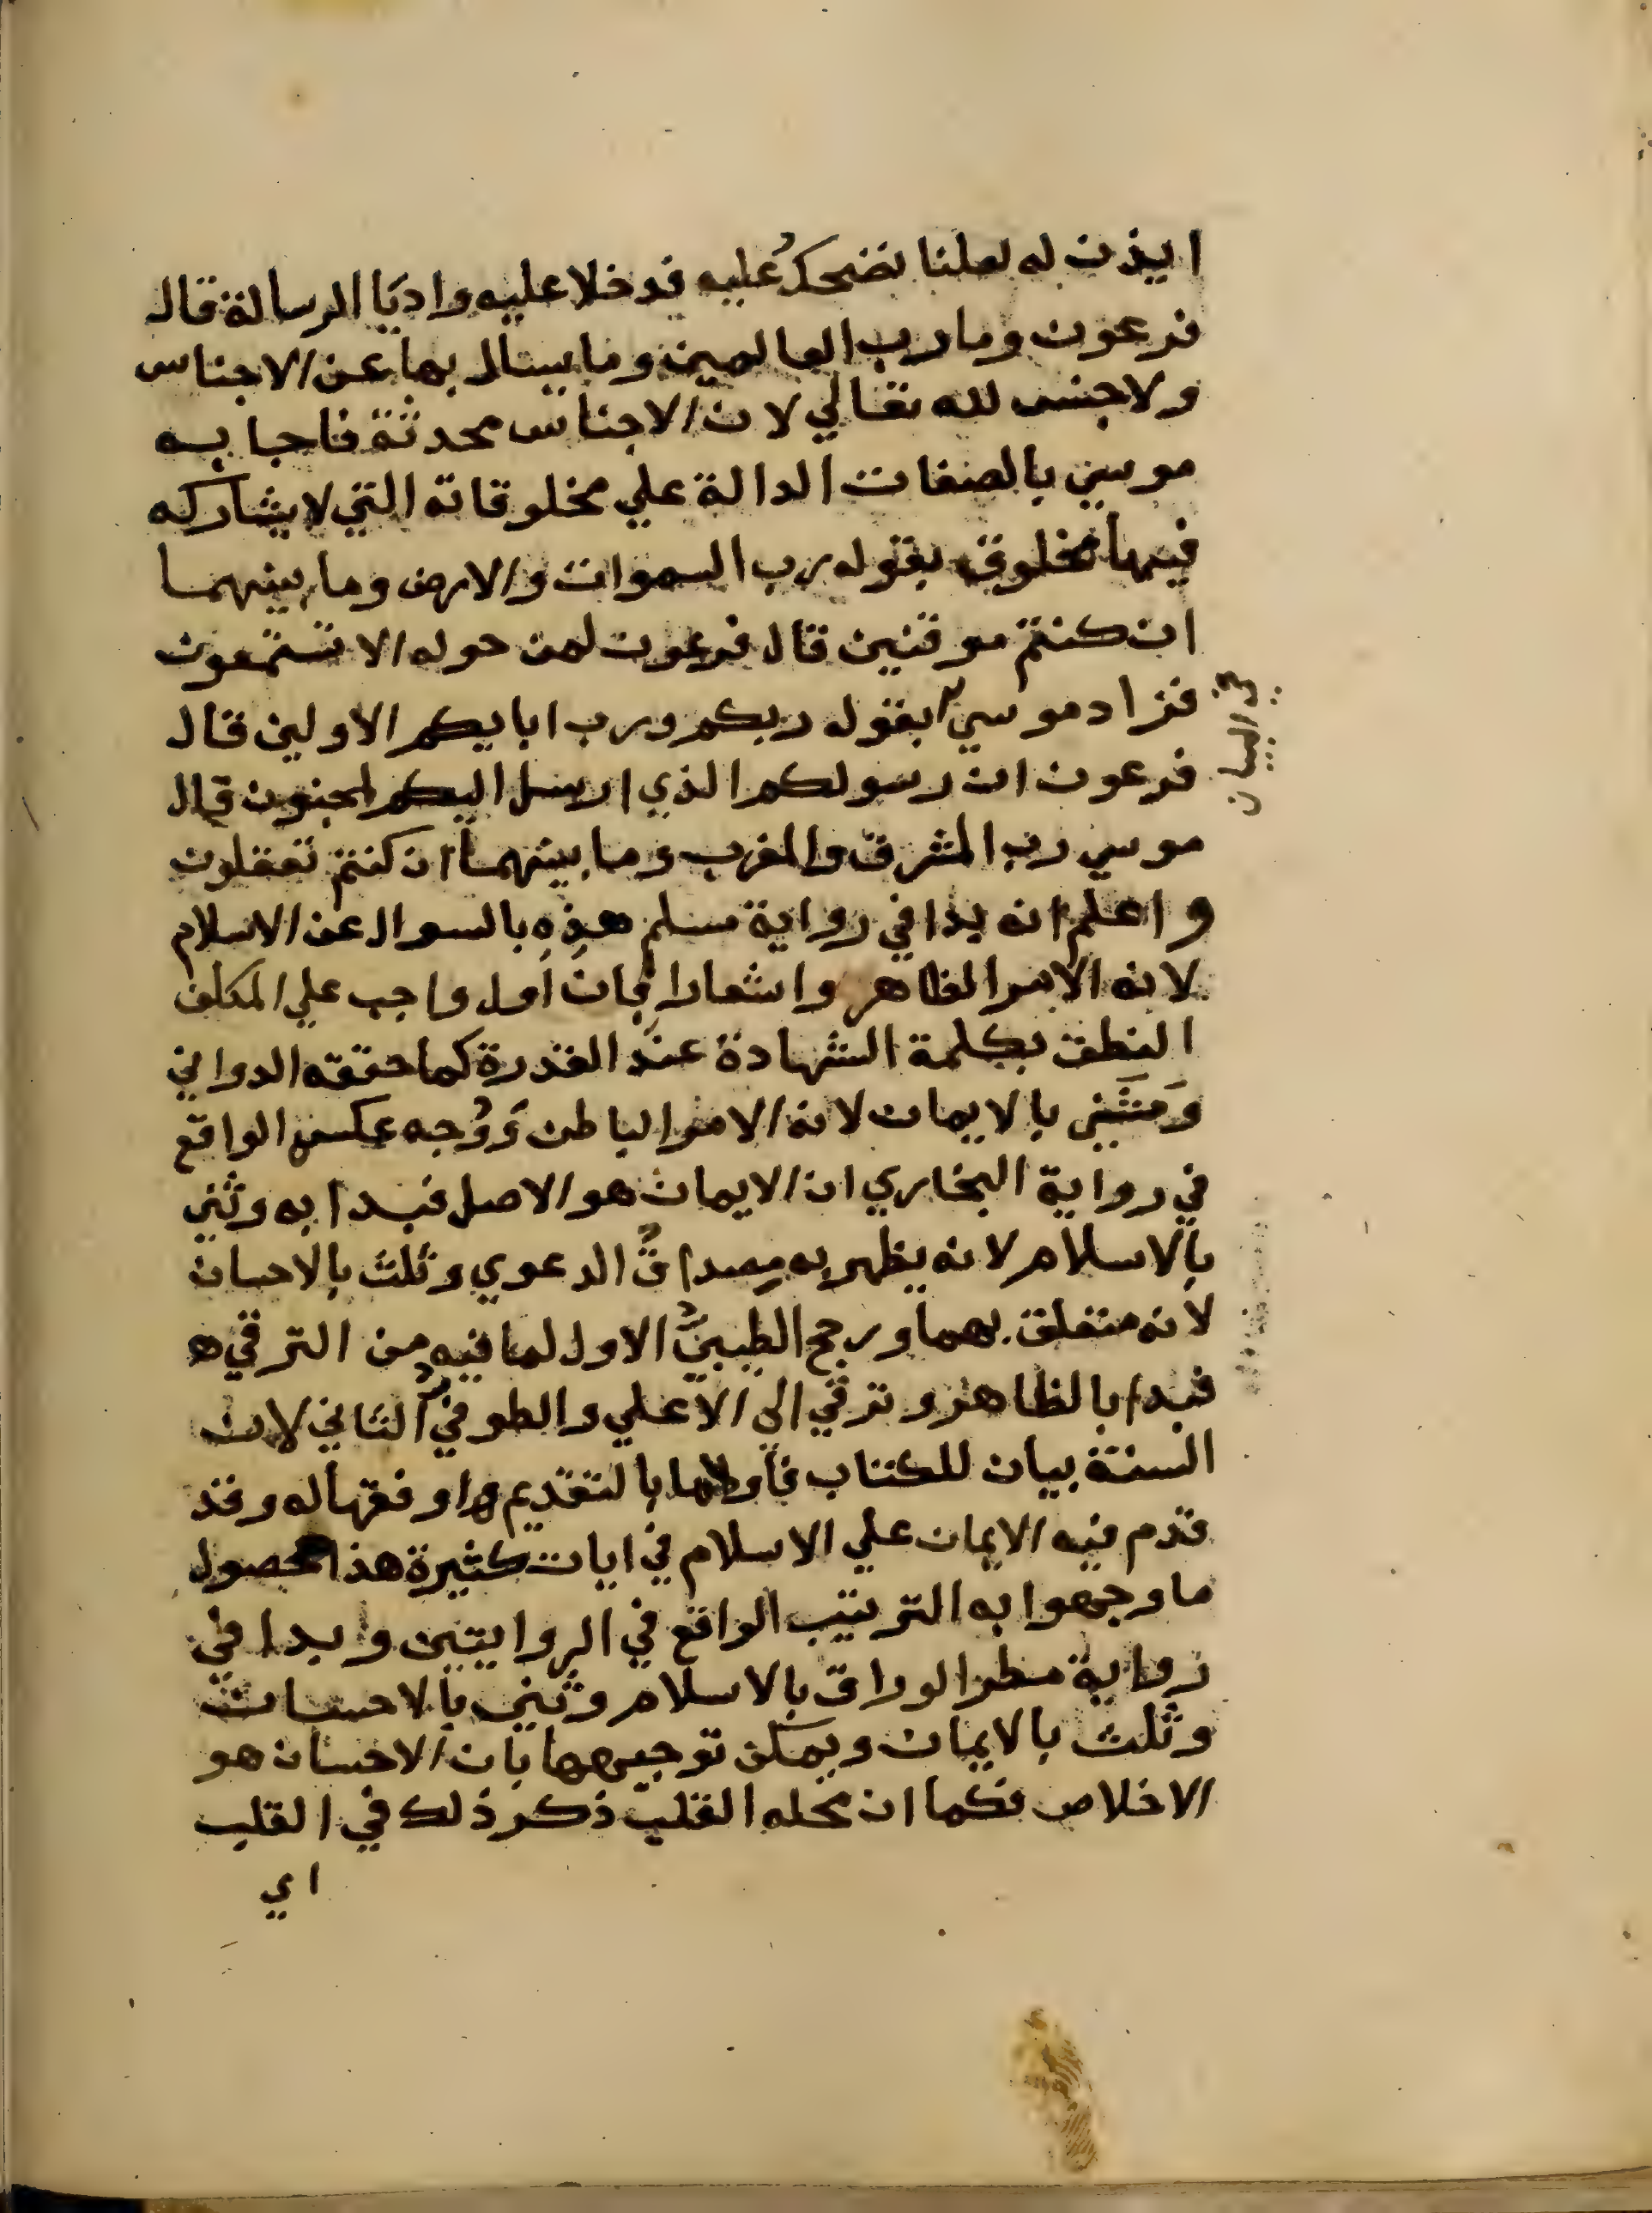 ايذن له لعلنا نضحك عليه فدخلا عليه واديا الرسالة قال
فرعون وما رب العالمين وما يسال بها عن الاجناس
ولا جنس لله تعالي لان الاجناس محدثة فاجابه
موسي بالصفات الدالة علي مخلوقاته التي لا يشاركه
فيها مخلوق بقوله رب السموات والارض وما بينهما
ان كنتم موقنين قال فرعون لمن حوله الا تستمعون
فزاد موسي بقوله ربكم ورب ابايكم الاولين قال
في البيان
فرعون ان رسولكم الذي ارسل اليكم لمجنون قال
موسي رب المشرق والمغرب وما بينهما ان كنتم تعقلون
واعلم انه بدا في رواية مسلم هذه بالسوال عن الاسلام
لانه الامر الظاهر واشعارا بان اول واجب علي المكلف
النطق بكلمة الشهادة عند القدرة كما حققه الدواني
وثني بالايمان لانه الامر الباطن ووجه عكس الواقع
في رواية البخاري ان الايمان هو الاصل فبدا به وثني
بالاسلام لانه يظهر به مصداق الدعوي وثلث بالاحسان
لانه متعلق بهما ورجح الطيبي الاول لما فيه من الترقي
فبدا بالظاهر وترقي الي الاعلي والطوفي الثاني لان
السنة بيان للكتاب فاولاها بالتقديم اوفقها له وقد
قدم فيه الايمان علي الاسلام في ايات كثيرة هذا محصول
ما وجهوا به الترتيب الواقع في الروايتين وبدا في
رواية مطر الوراق بالاسلام وثني بالاحسان
وثلث بالايمان ويمكن توجيهها بان الاحسان هو
الاخلاص فكما ان محله القلب ذكر ذلك في القلب
اي